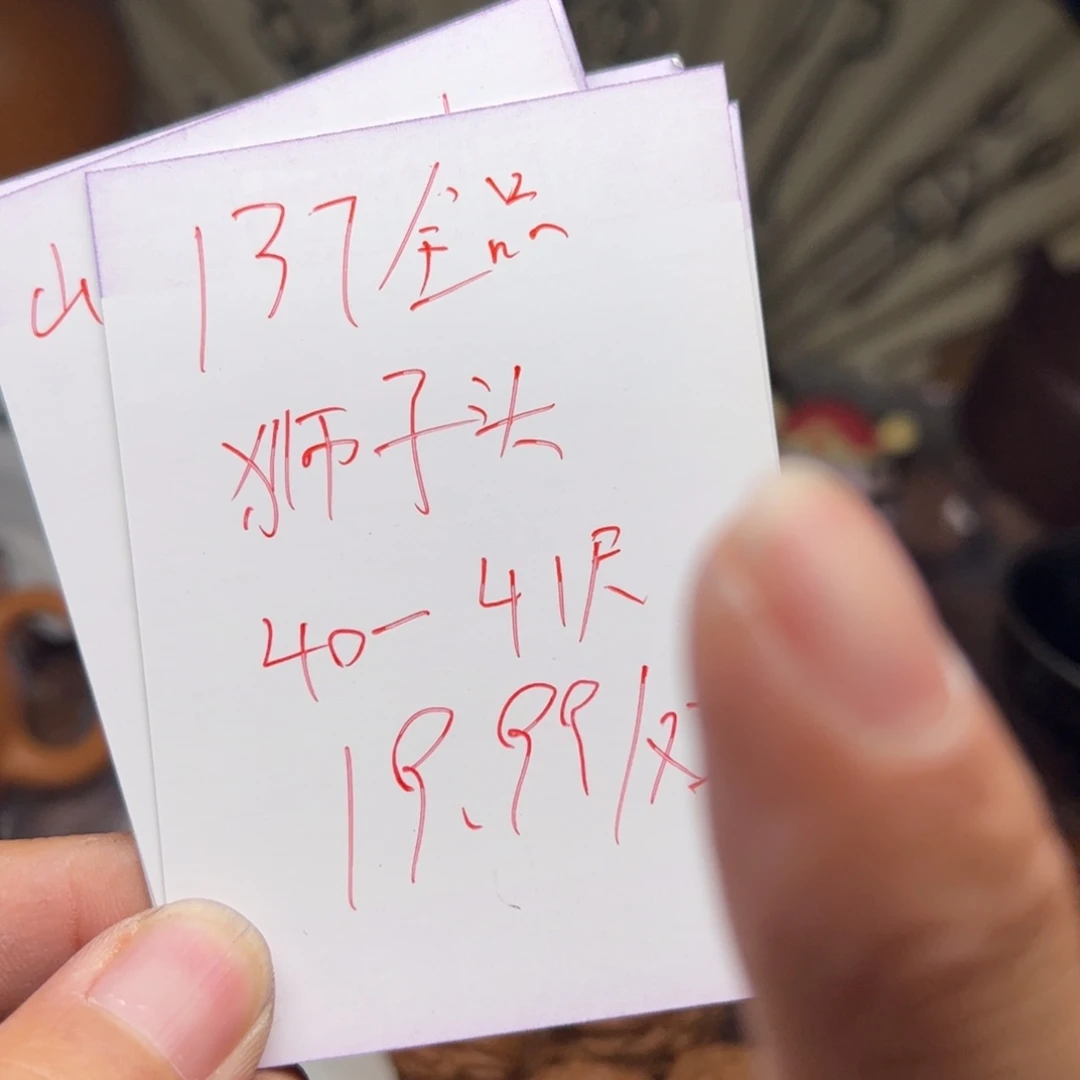 137全品
狮子头
40-41尺
19.99/对